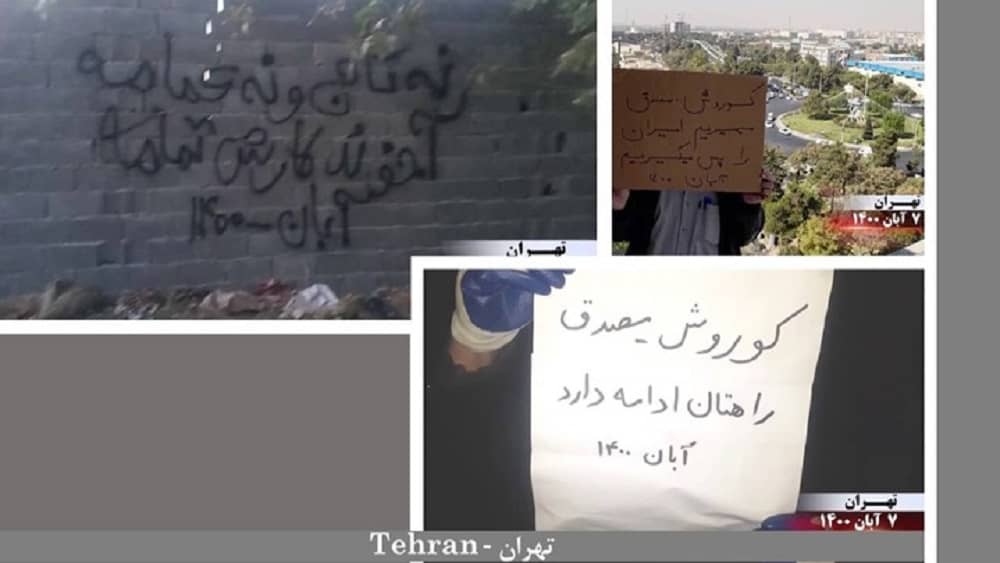 نه تاج و نه عمامه
آخوند کارش تمامه
آبان - ۱۴۰۰
تهران
کوروش مصدق
بمیریم ایران
را پس میگیریم
آبان ۱۴۰۰
تهران
۷ آبان ۱۴۰۰
کوروش مصدق
راهتان ادامه دارد
آبان ۱۴۰۰
تهران
۷ آبان ۱۴۰۰
Tehran - تهران